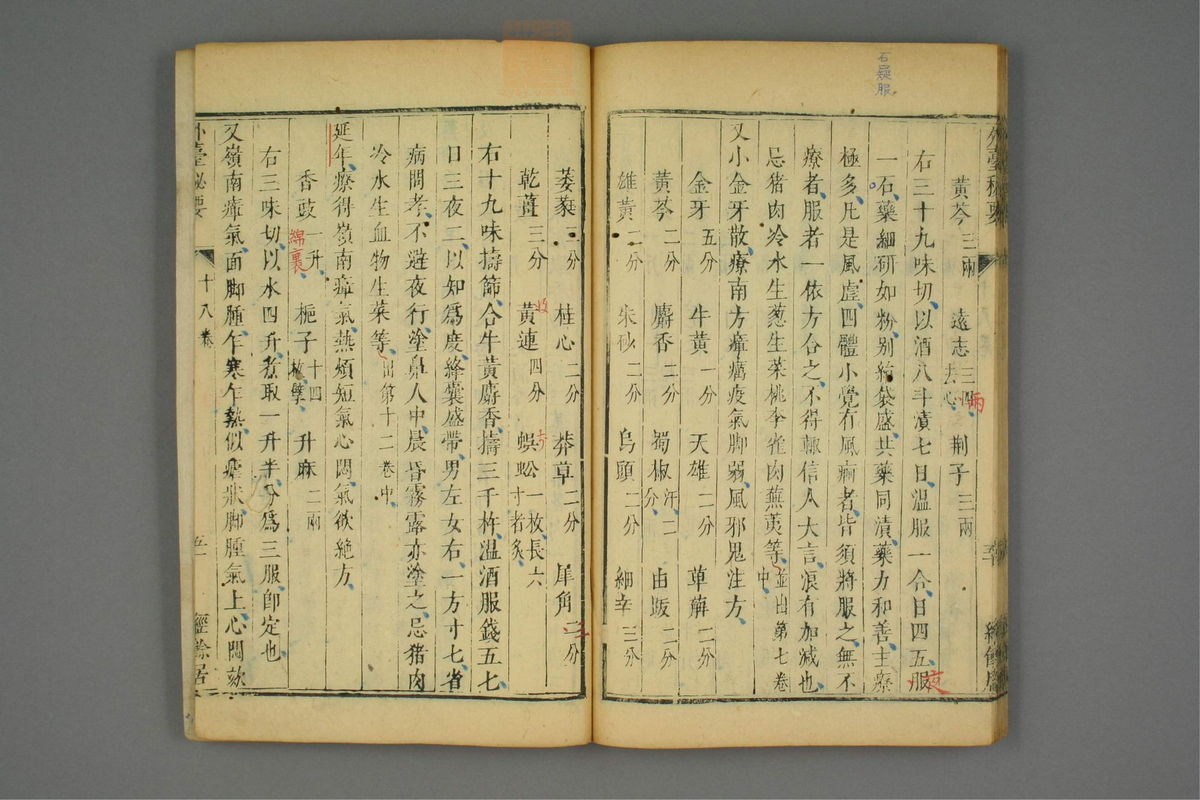 石疑服
外臺秘要
黃芩三兩 遠志三四去心 兩 荆子三兩
右三十九味切以酒八斗漬七日溫服一合日四五服 夜
一石藥細研如粉別絹袋盛共藥同漬藥力和善主療
極多凡是風虛四體小覺有風痾者皆須將服之無不
療者服者一依方合之不得輒信人大言浪有加減也
忌猪肉冷水生葱生菜桃李雀肉蕪荑等並出第七卷中
又小金牙散療南方瘴癘疫氣脚弱風邪鬼注方
金牙五分 牛黃一分 天雄二分 萆薢二分
黃芩二分 麝香二分 蜀椒汗二分 由跋二分
雄黃二分 朱砂二分 烏頭二分 細辛三分
萎蕤二分 桂心二分 莽草二分 犀角二分
乾薑三分 黃連四分 蜈蚣一枚長六寸者炙
右十九味擣篩合牛黃麝香擣三千杵溫酒服錢五七
日三夜二以知爲度絳囊盛帶男左女右一方寸七省
病問孝不避夜行塗鼻人中晨昏霧露亦塗之忌猪肉
冷水生血物生菜等出第十二卷中
延年療得嶺南瘴氣熱煩短氣心悶氣欲絶方
香豉一升 綿裹 梔子十四枚擘 升麻二兩
右三味切以水四升煮取一升半分爲三服卽定也
又嶺南瘴氣面脚腫乍寒乍熱似瘧狀脚腫氣上心悶欬
外臺秘要 十八卷 經餘居